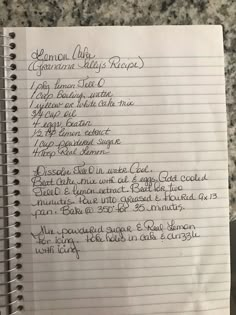 Lemon Cake
(Grandma Sally's Recipe)
1 pkg lemon Jell-O
1 cup boiling water
1 yellow or white cake mix
3/4 cup oil
4 eggs, beaten
1 1/2 tsp lemon extract
1 cup powdered sugar
4 tbsp Real Lemon
Dissolve Jell-O in water. Cool.
Beat cake mix with oil & eggs. Add cooled
Jell-O & lemon extract. Beat for two
minutes. Pour into greased & floured 9x13
pan. Bake @ 350° for 35 minutes.
Mix powdered sugar & Real Lemon
for icing. Poke holes in cake & drizzle
with icing.